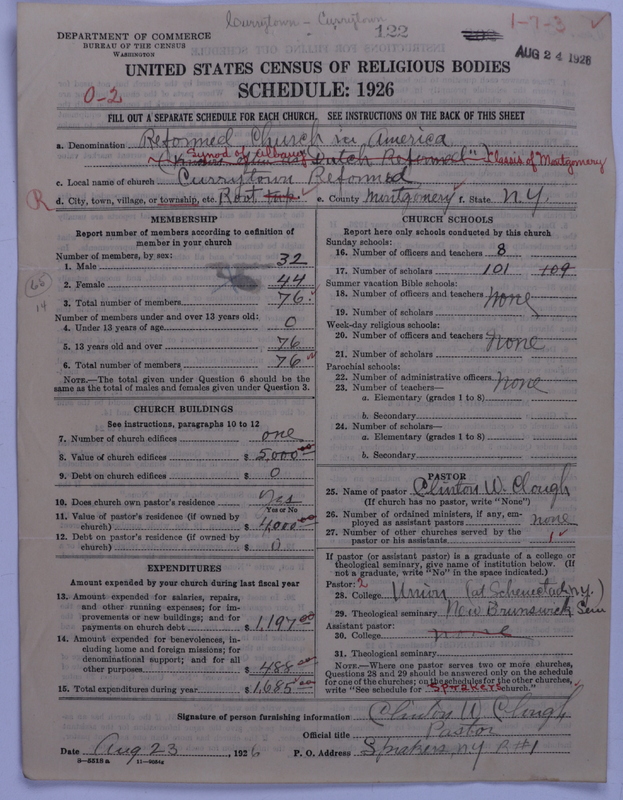 Currytown - Currytown
122
1-7-3
DEPARTMENT OF COMMERCE
BUREAU OF THE CENSUS
WASHINGTON
AUG 24 1926
UNITED STATES CENSUS OF RELIGIOUS BODIES
SCHEDULE: 1926
0-2
FILL OUT A SEPARATE SCHEDULE FOR EACH CHURCH. SEE INSTRUCTIONS ON THE BACK OF THIS SHEET
a. Denomination Reformed Church in America
Synod of Albany Dutch Reformed") Classis of Montgomery
c. Local name of church Currytown Reformed
R d. City, town, village, or township, etc. Root e. County Montgomery f. State N.Y.
MEMBERSHIP
Report number of members according to definition of
member in your church
Number of members, by sex:
1. Male 32
2. Female 44
3. Total number of members 76
65
14
Number of members under and over 13 years old:
4. Under 13 years of age 0
5. 13 years old and over 76
6. Total number of members 76
NOTE.—The total given under Question 6 should be
same as the total of males and females given under Question 3.
CHURCH BUILDINGS
See instructions, paragraphs 10 to 12
7. Number of church edifices one
8. Value of church edifices $ 5,000.00
9. Debt on church edifices $ 0
10. Does church own pastor's residence Yes
Yes or No
11. Value of pastor's residence (if owned by
church) $ 4,000.00
12. Debt on pastor's residence (if owned by
church) $ 0
EXPENDITURES
Amount expended by your church during last fiscal year
13. Amount expended for salaries, repairs,
and other running expenses; for im-
provements or new buildings; and for
payments on church debt $ 1,197.00
14. Amount expended for benevolences, in-
cluding home and foreign missions; for
denominational support; and for all
other purposes $ 488.00
15. Total expenditures during year $ 1,685.00
CHURCH SCHOOLS
Report here only schools conducted by this church
Sunday schools:
16. Number of officers and teachers 8
17. Number of scholars 101 109
Summer vacation Bible schools:
18. Number of officers and teachers None
19. Number of scholars
Week-day religious schools:
20. Number of officers and teachers None
21. Number of scholars
Parochial schools:
22. Number of administrative officers None
23. Number of teachers—
a. Elementary (grades 1 to 8)
b. Secondary
24. Number of scholars—
a. Elementary (grades 1 to 8)
b. Secondary
PASTOR
25. Name of pastor Clinton W. Clough
(If church has no pastor, write "None")
26. Number of ordained ministers, if any, em-
ployed as assistant pastors none
27. Number of other churches served by the
pastor or his assistants 1
If pastor (or assistant pastor) is a graduate of a college or
theological seminary, give name of institution below. (If
not a graduate, write "No" in the space indicated.)
Pastor: 2
28. College Union (at Schenectady N.Y.)
29. Theological seminary New Brunswick Sem
Assistant pastor:
30. College none
31. Theological seminary
NOTE.—Where one pastor serves two or more churches,
Questions 28 and 29 should be answered only on the schedule
for one of the churches; on the schedules for the other churches,
write "See schedule for Sprakers church."
Signature of person furnishing information Clinton W. Clough
Official title Pastor
Date Aug 23, 1926 P. O. Address Sprakers, N.Y. R#1
8—5518 a